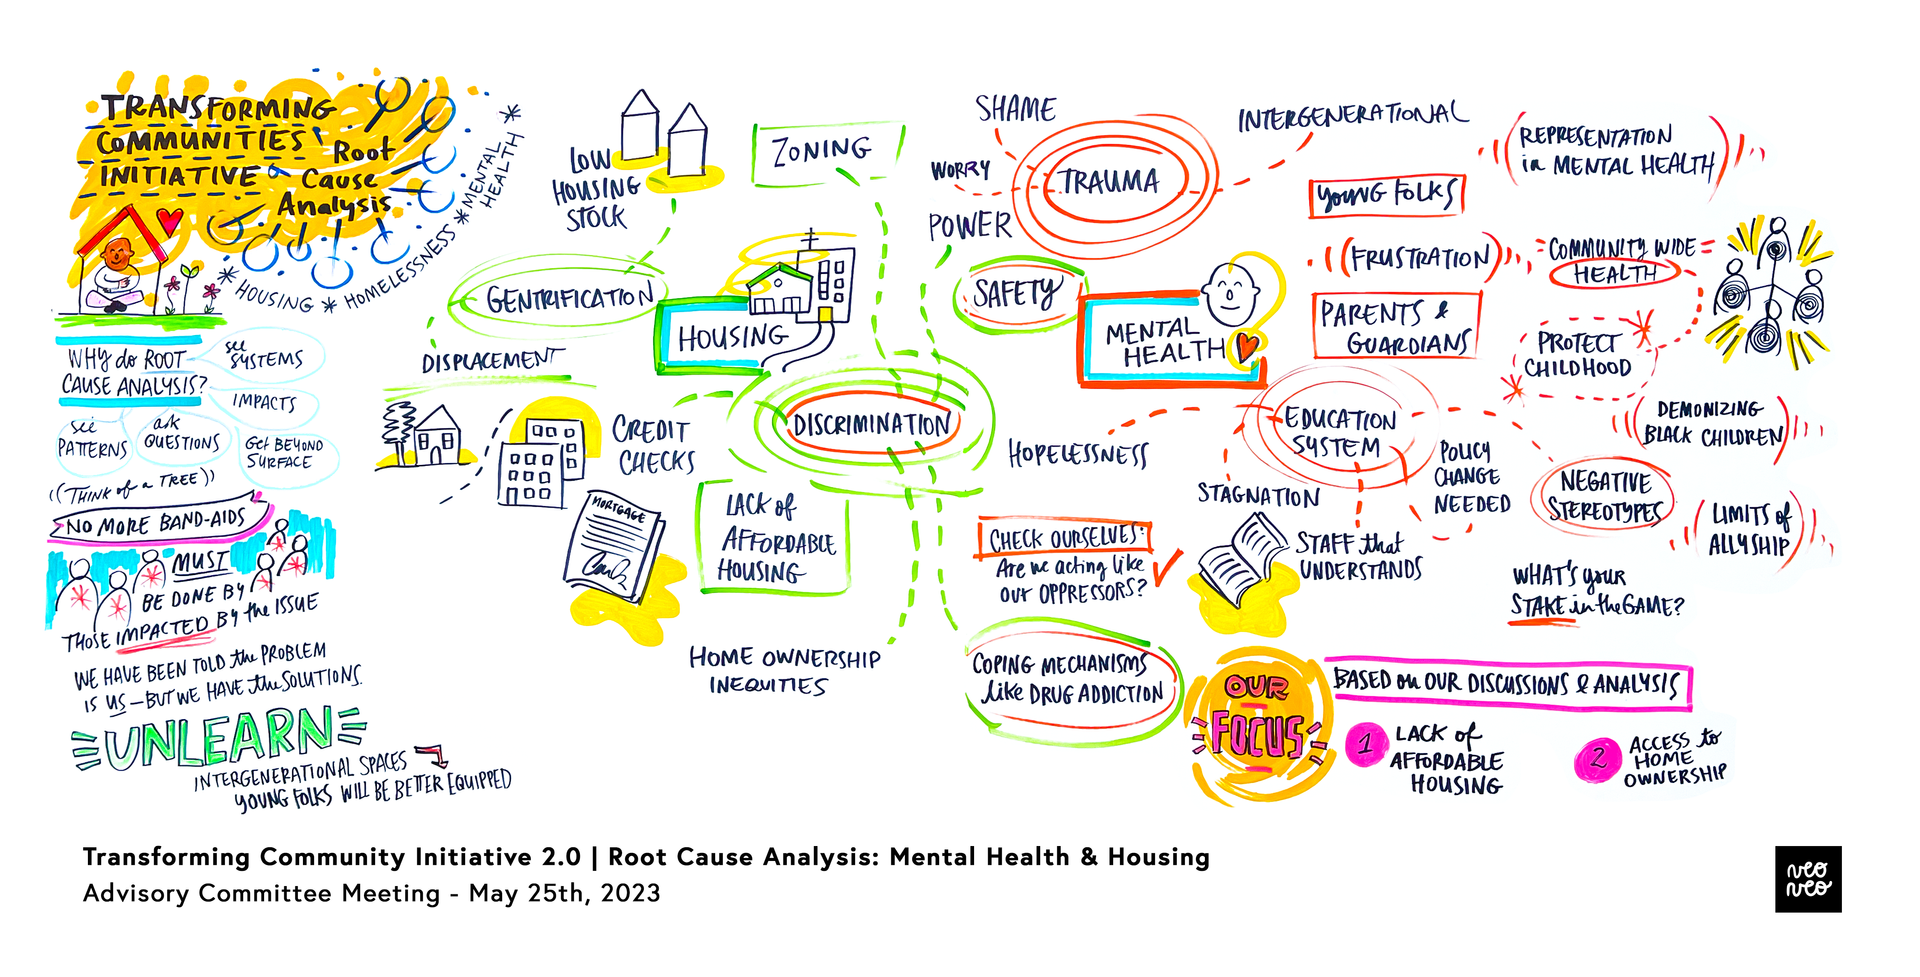 TRANSFORMING
COMMUNITIES
INITIATIVE
Root
Cause
Analysis
* HOUSING * HOMELESSNESS * MENTAL HEALTH *
WHY do ROOT
CAUSE ANALYSIS?
see
SYSTEMS
IMPACTS
see
PATTERNS
ask
QUESTIONS
Get BEYOND
SURFACE
((THINK of a TREE))
NO MORE BAND-AIDS
MUST
BE DONE BY
THOSE IMPACTED BY the ISSUE
WE HAVE BEEN TOLD the PROBLEM
IS US – BUT WE HAVE the SOLUTIONS.
UNLEARN
INTERGENERATIONAL SPACES
YOUNG FOLKS WILL BE BETTER EQUIPPED
LOW
HOUSING
STOCK
ZONING
GENTRIFICATION
HOUSING
DISPLACEMENT
CREDIT
CHECKS
DISCRIMINATION
MORTGAGE
LACK of
AFFORDABLE
HOUSING
HOME OWNERSHIP
INEQUITIES
SHAME
WORRY
POWER
TRAUMA
INTERGENERATIONAL
SAFETY
MENTAL
HEALTH
YOUNG FOLKS
((FRUSTRATION))
PARENTS &
GUARDIANS
REPRESENTATION
in MENTAL HEALTH
COMMUNITY WIDE
HEALTH
PROTECT
CHILDHOOD
EDUCATION
SYSTEM
HOPELESSNESS
STAGNATION
POLICY
CHANGE
NEEDED
DEMONIZING
BLACK CHILDREN
NEGATIVE
STEREOTYPES
LIMITS of
ALLYSHIP
CHECK OURSELVES:
Are we acting like
our OPPRESSORS?
STAFF that
UNDERSTANDS
WHAT'S your
STAKE in the GAME?
COPING MECHANISMS
like DRUG ADDICTION
OUR
FOCUS
BASED on OUR DISCUSSIONS & ANALYSIS
1 LACK of
AFFORDABLE
HOUSING
2 ACCESS to
HOME
OWNERSHIP
Transforming Community Initiative 2.0 | Root Cause Analysis: Mental Health & Housing
Advisory Committee Meeting - May 25th, 2023
neo
neo